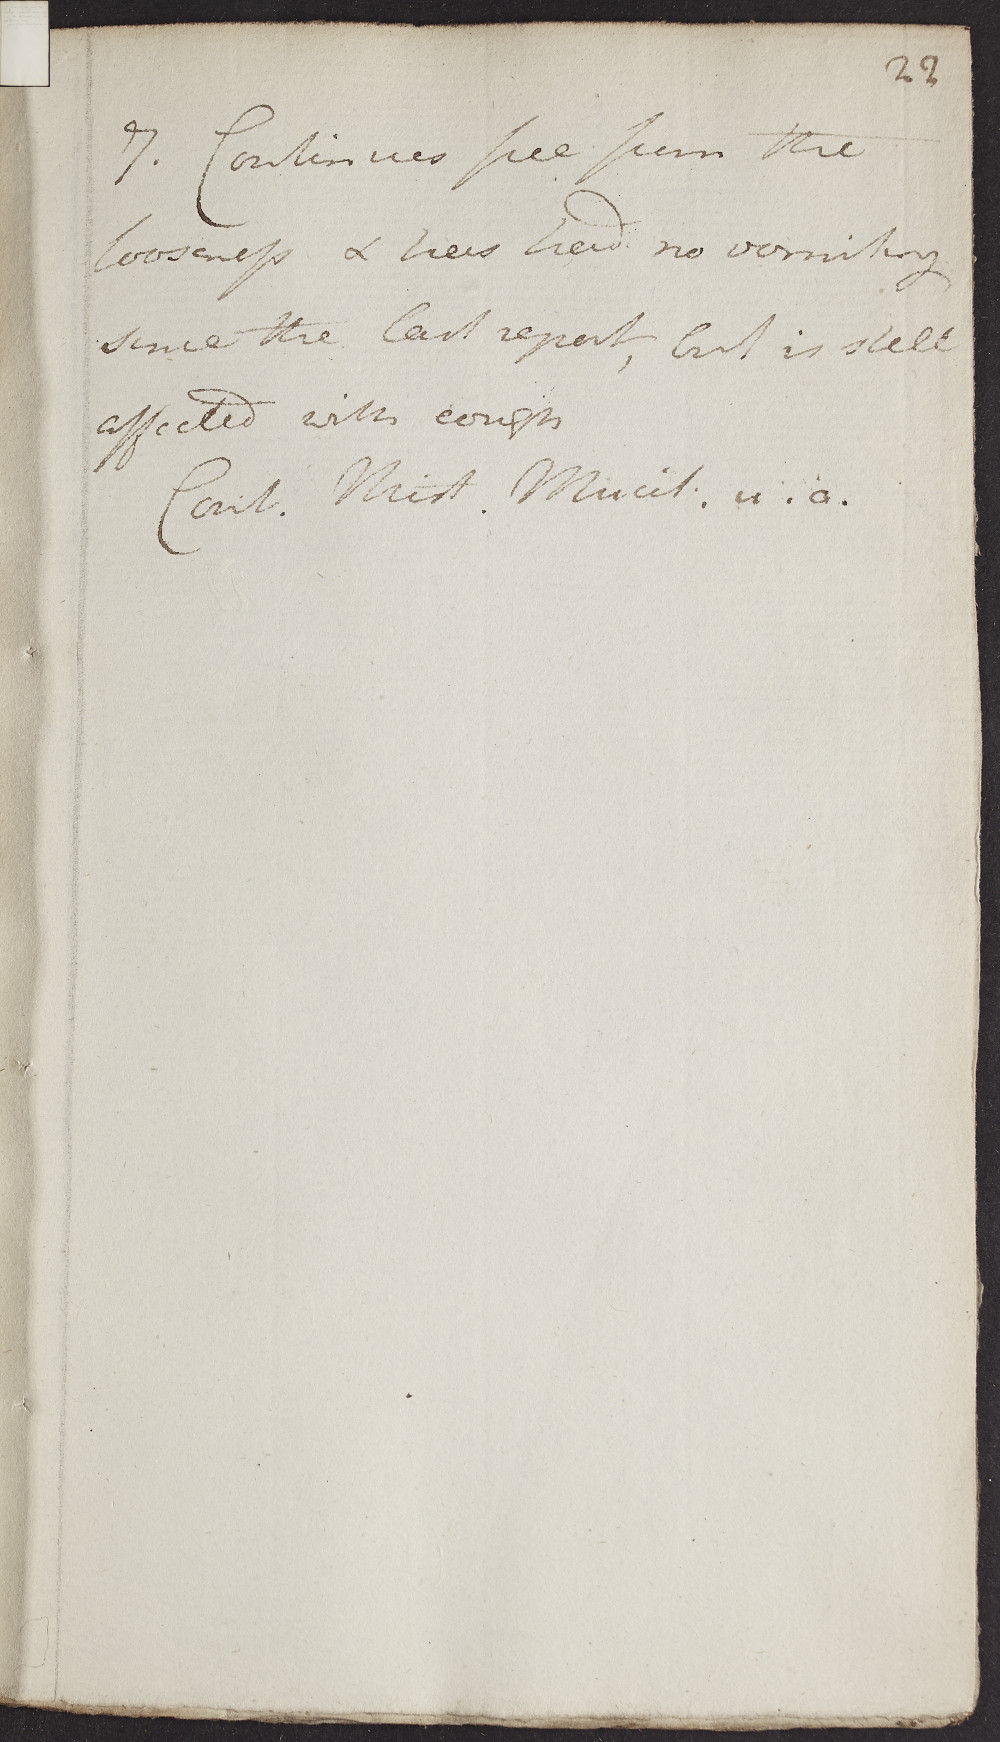 22
7. Continues free from the
looseness & has had no vomiting
since the last report, but is still
affected with cough
Cont. Mist. Mucil. u.a.